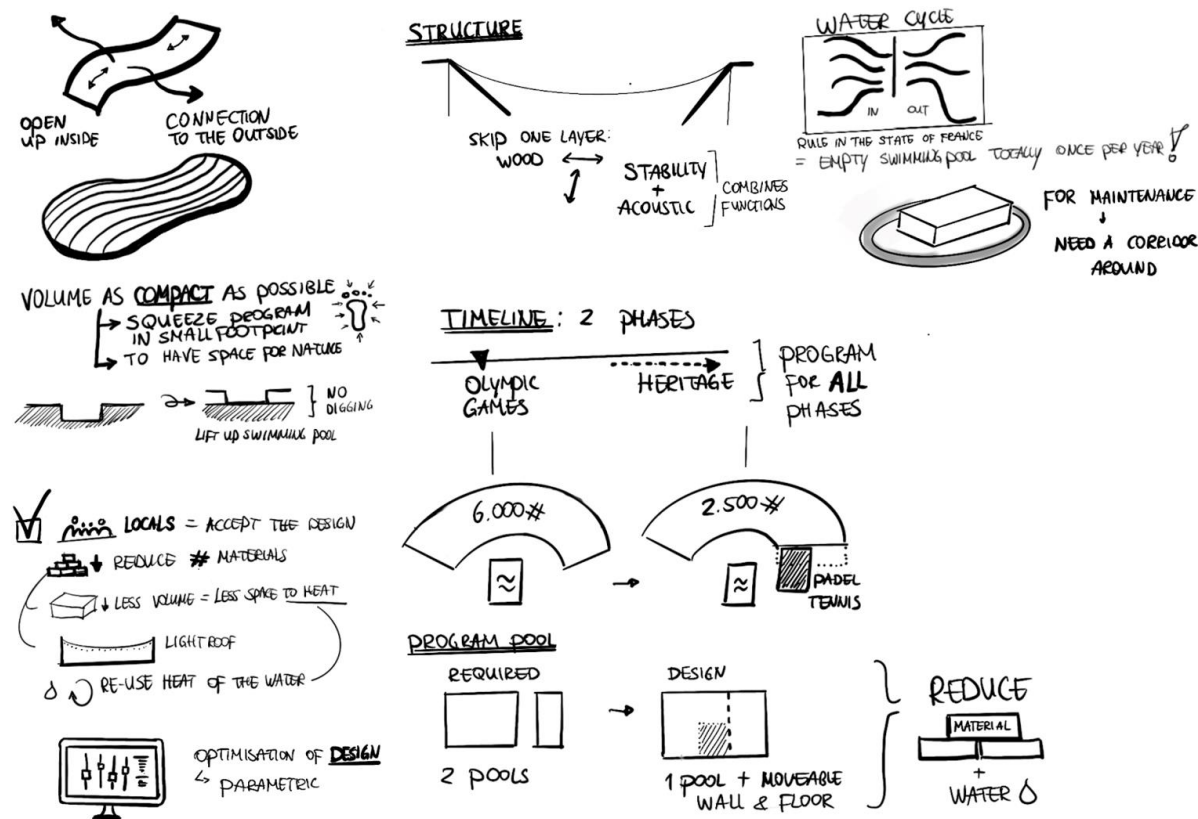 OPEN
UP INSIDE
CONNECTION
TO THE OUTSIDE
VOLUME AS COMPACT AS POSSIBLE
SQUEEZE PROGRAM
IN SMALL FOOTPRINT
TO HAVE SPACE FOR NATURE
NO
DIGGING
LIFT UP SWIMMING POOL
LOCALS = ACCEPT THE DESIGN
REDUCE # MATERIALS
LESS VOLUME = LESS SPACE TO HEAT
LIGHT ROOF
RE-USE HEAT OF THE WATER
OPTIMISATION OF DESIGN
PARAMETRIC
STRUCTURE
SKIP ONE LAYER:
WOOD
STABILITY
+
ACOUSTIC
COMBINES
FUNCTIONS
TIMELINE: 2 PHASES
OLYMPIC
GAMES
HERITAGE
PROGRAM
FOR ALL
PHASES
6.000#
2.500#
PADEL
TENNIS
PROGRAM POOL
REQUIRED
2 POOLS
DESIGN
1 POOL + MOVEABLE
WALL & FLOOR
REDUCE
MATERIAL
+
WATER
WATER CYCLE
IN
OUT
RULE IN THE STATE OF FRANCE
= EMPTY SWIMMING POOL TOTALLY ONCE PER YEAR!
FOR MAINTENANCE
NEED A CORRIDOR
AROUND